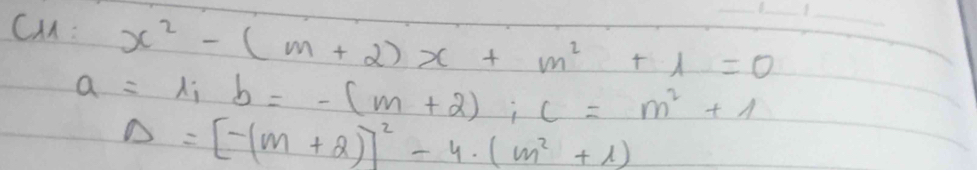 CM: x² - (m + 2)x + m² + 1 = 0
a = 1; b = -(m + 2) ; c = m² + 1
Δ = [-(m + 2)]² - 4. (m² + 1)